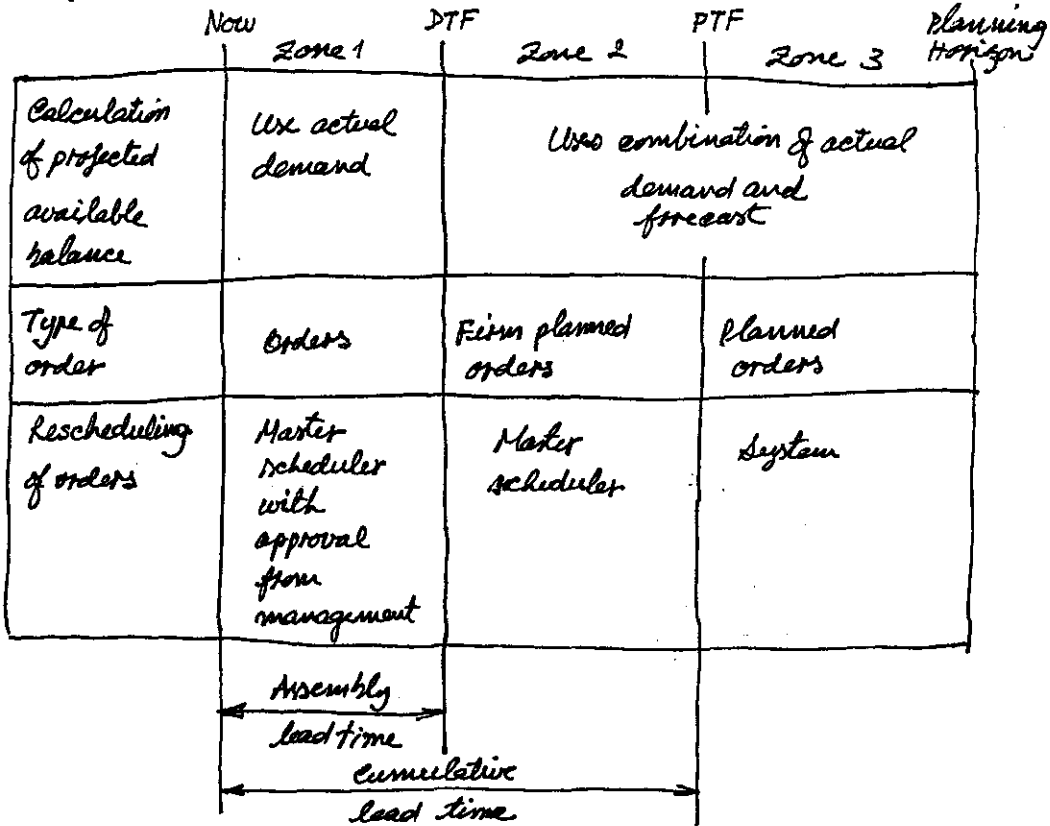 Now DTF PTF Planning
Zone 1 Zone 2 Zone 3 Horizon
Calculation
of projected
available
balance
Use actual
demand
Uses combination of actual
demand and
forecast
Type of
order
Orders
Firm planned
orders
Planned
orders
Rescheduling
of orders
Master
scheduler
with
approval
from
management
Master
scheduler
System
Assembly
lead time
Cumulative
lead time